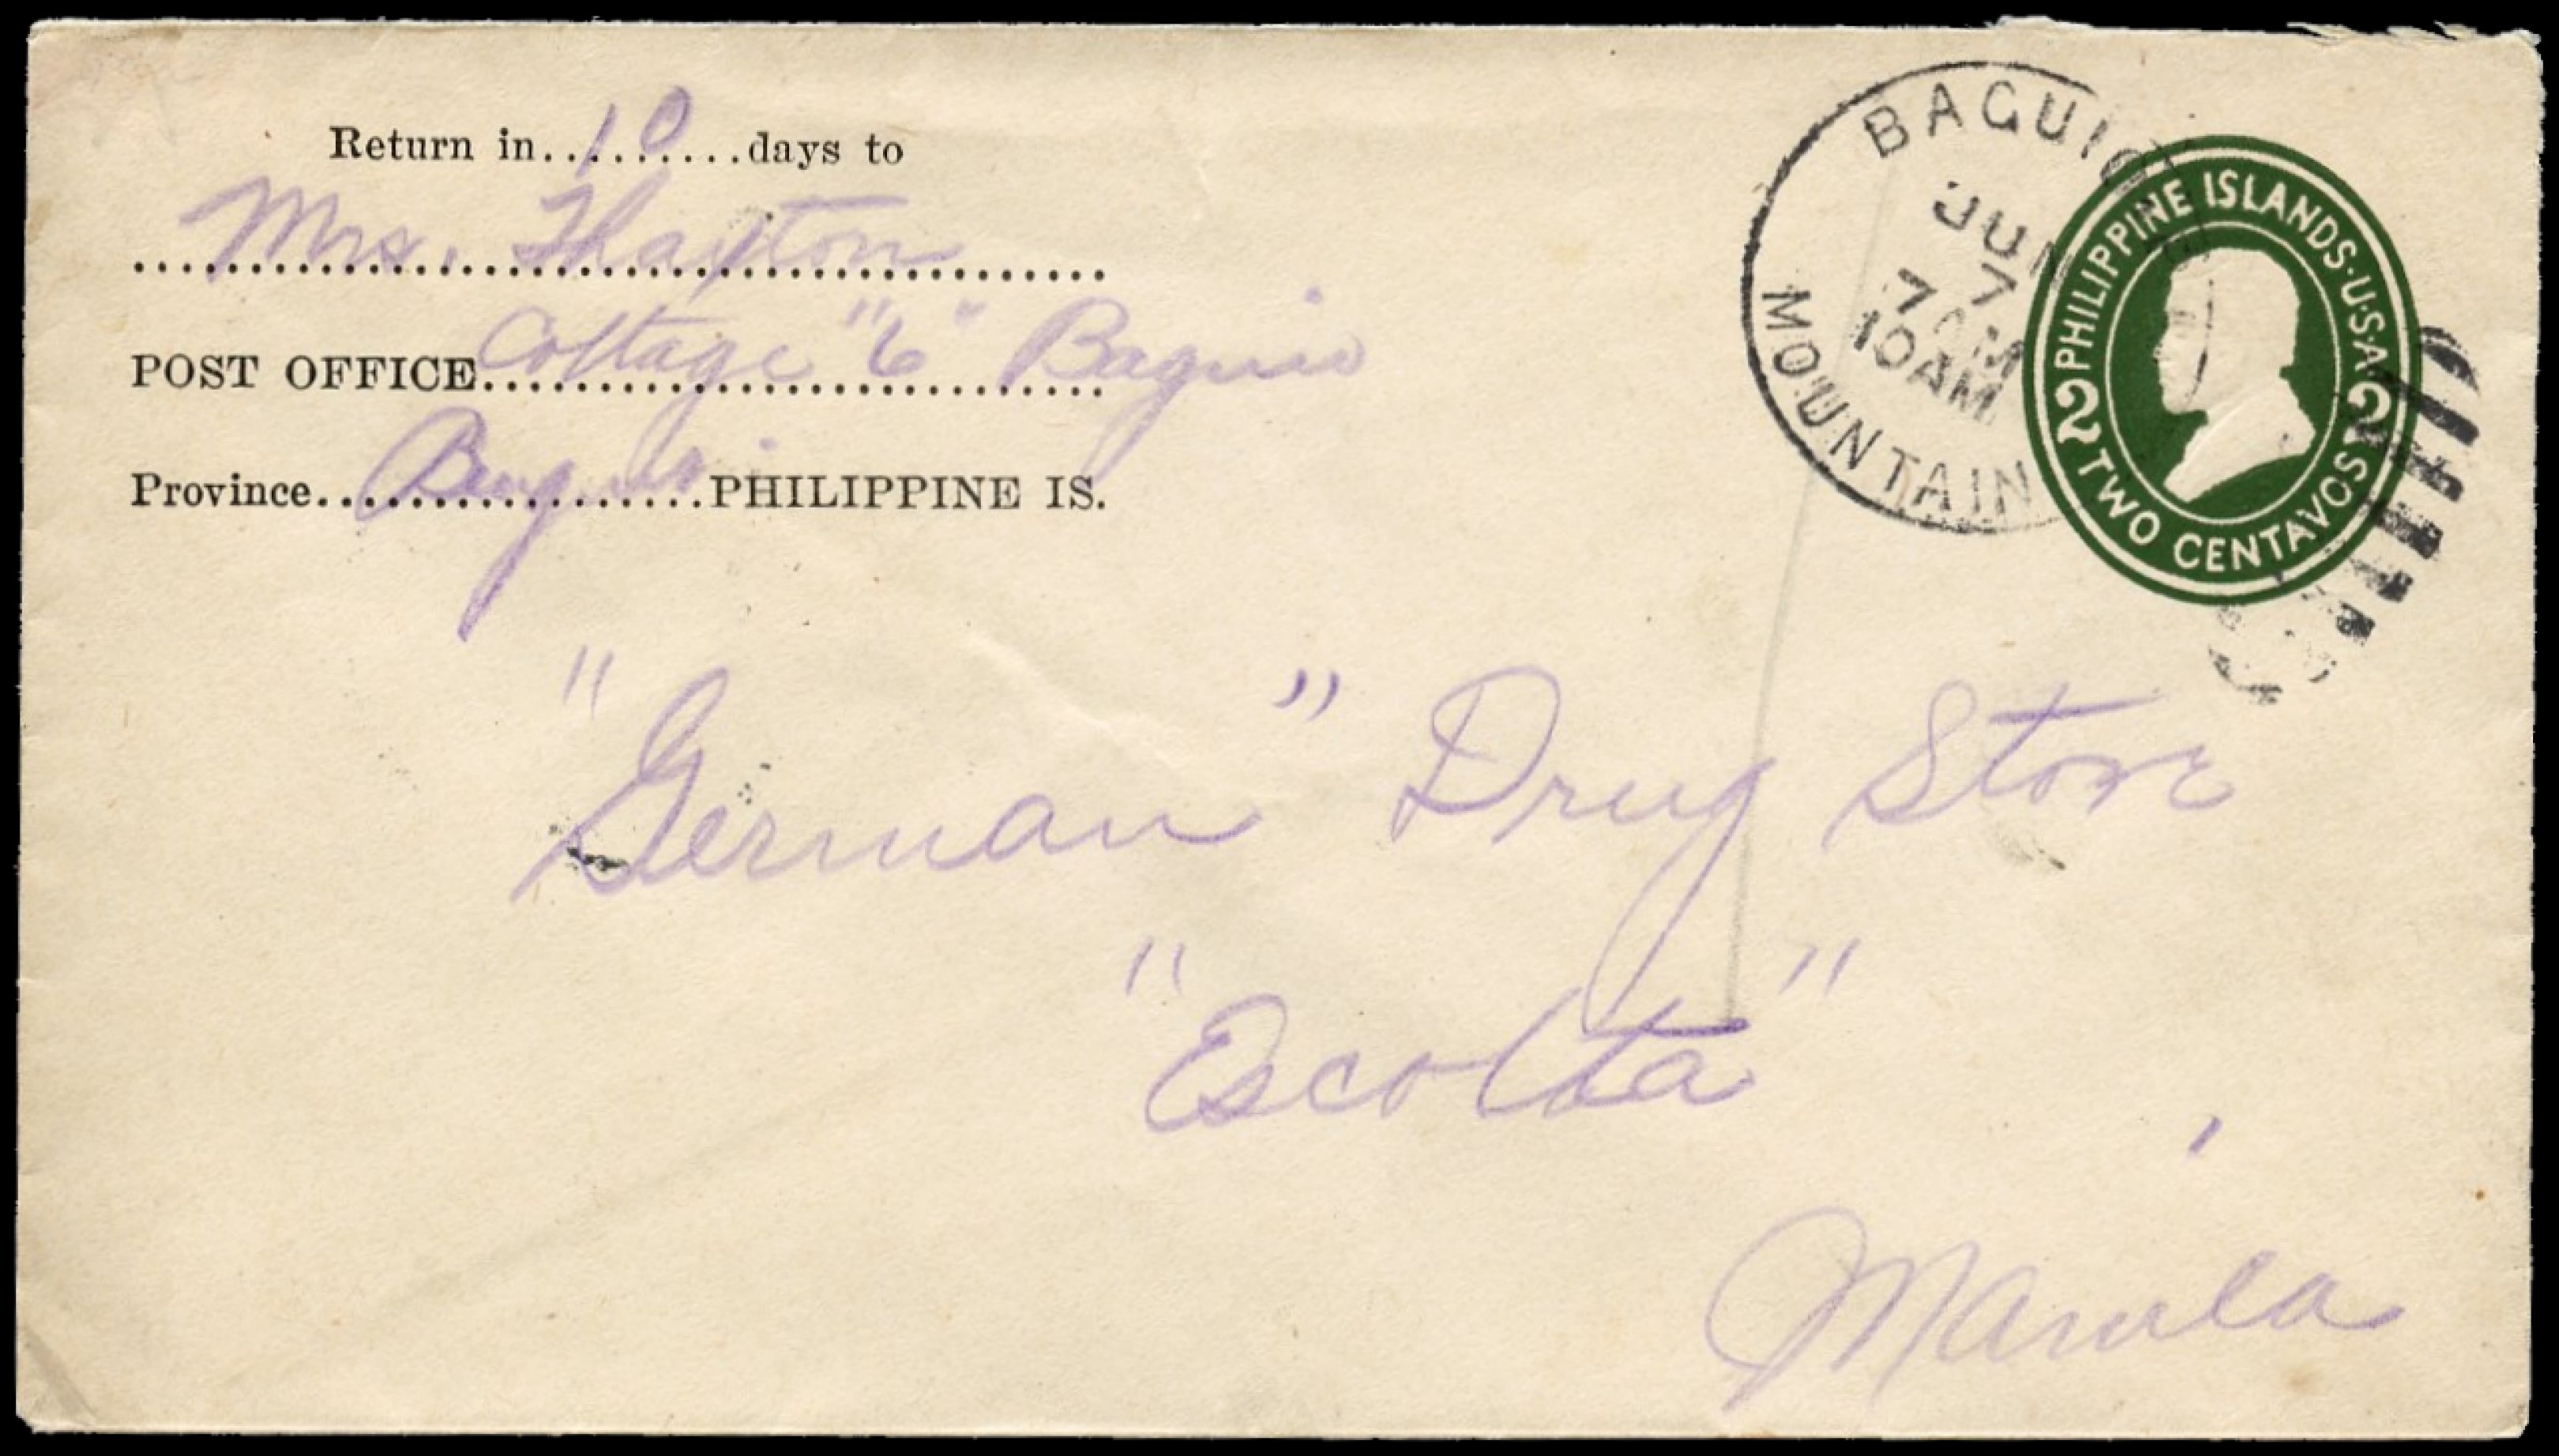 Return in..10..days to
Mrs. Thaxton
POST OFFICE Cottage "6" Baguio
Province Benguet PHILIPPINE IS.
BAGUIO
JUN
7
10AM
MOUNTAIN
PHILIPPINE ISLANDS·U·S·A·
2 TWO CENTAVOS 2
"German" Drug Store
"Escolta"
Manila